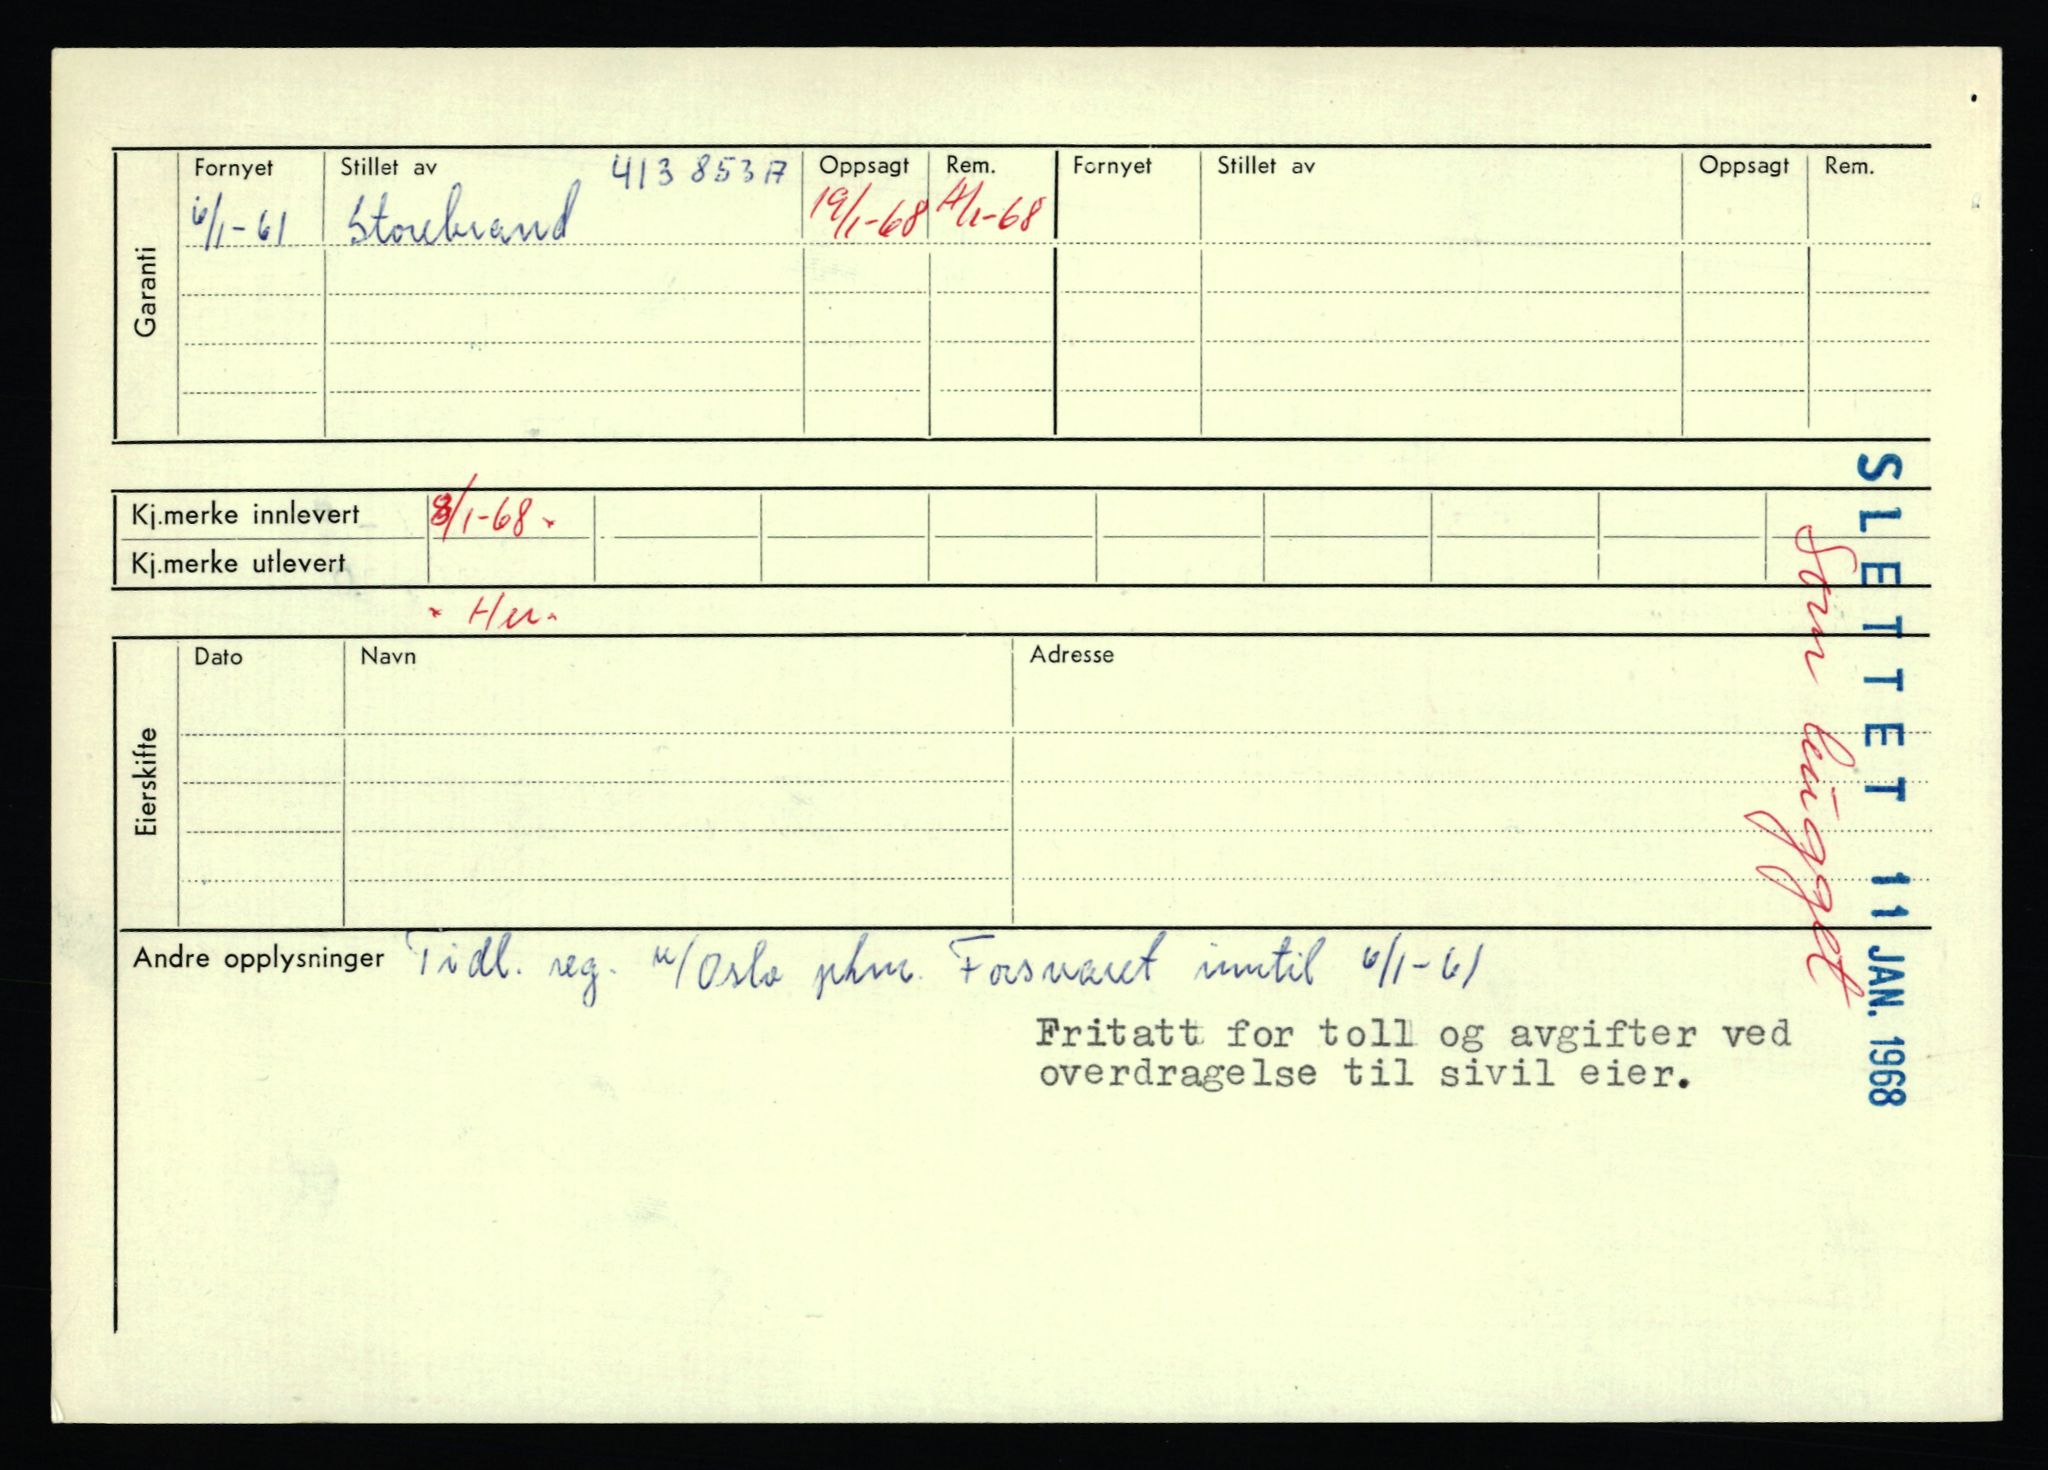 Garanti
Fornyet Stillet av 413 853 A Oppsagt Rem. Fornyet Stillet av Oppsagt Rem.
6/1-61 Storebrand 19/1-68 /1-68
Kj.merke innlevert 8/1-68
Kj.merke utlevert
Her
Eierskifte
Dato Navn Adresse
Andre opplysninger Tidl. reg. u/Oslo phm. Forsvaret inntil 6/1-61
Fritatt for toll og avgifter ved
overdragelse til sivil eier.
SLETTET 11 JAN. 1968
Som